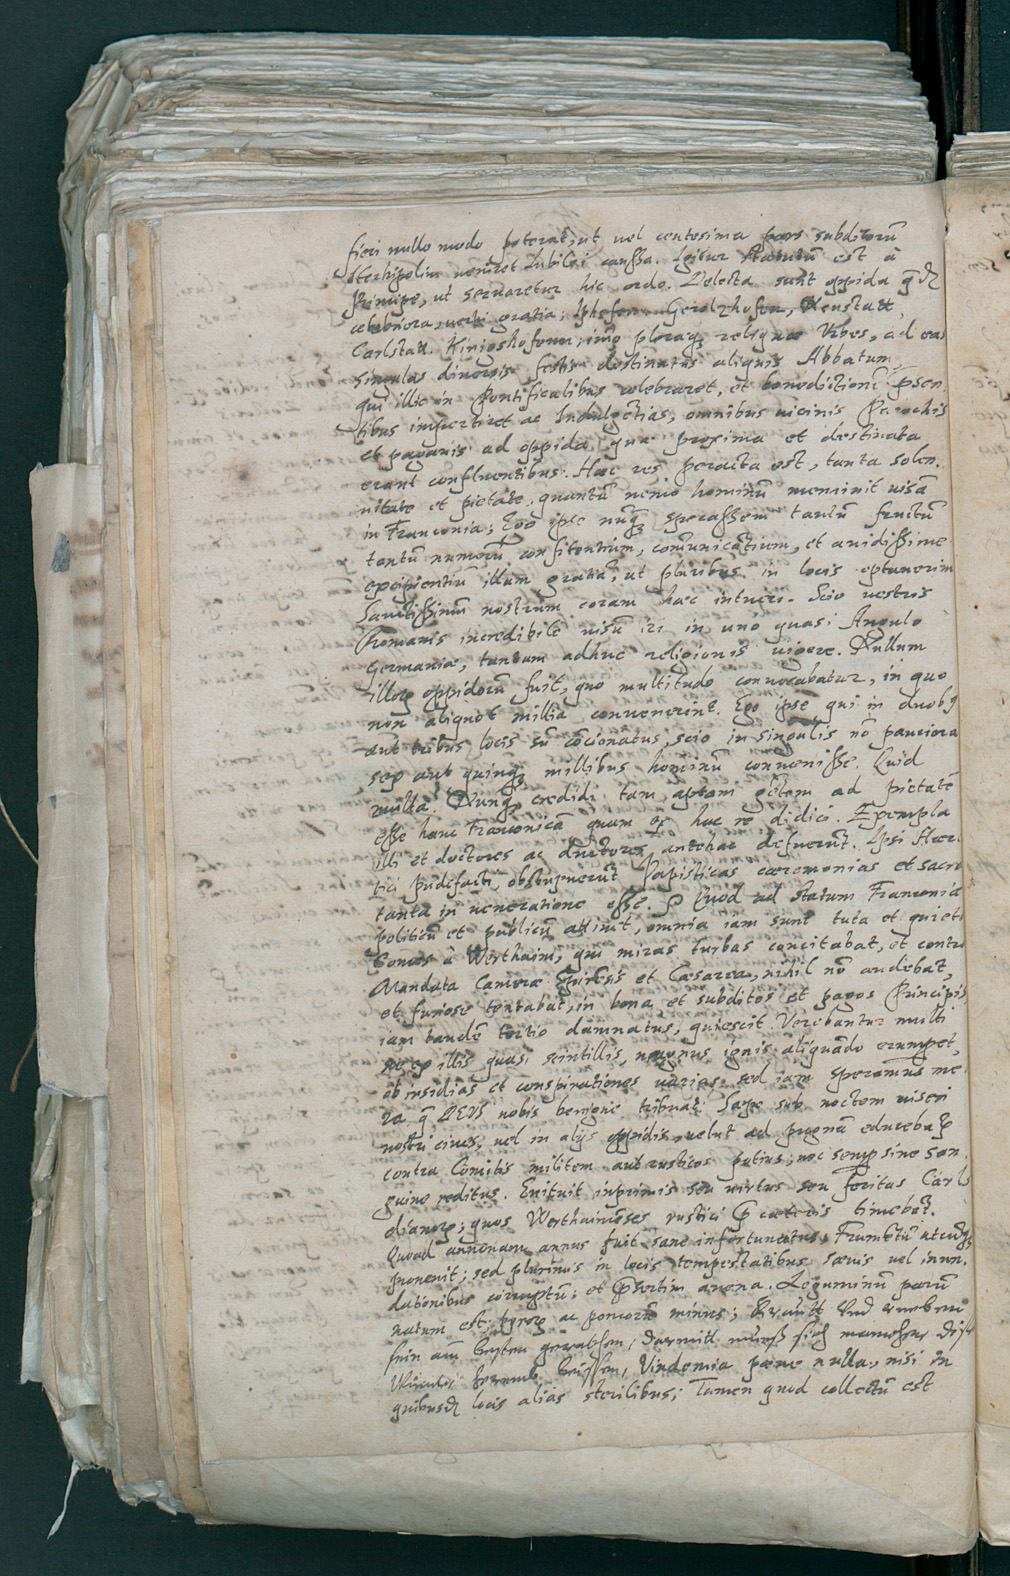 fieri nullo modo poterat, ut vel centesima pars subditorũ
Herbipolim veniret Iubilęi caussa. Igitur statutũ est à
Principe, ut servaretur hic ordo. Delecta sunt oppida
celebriora, verbi gratia, Iphofen, Gerolzhofen, Neustatt,
Carlstatt. Kinigshofenn, imò pleraq; reliquæ Vrbes, ad eas
singulas diversis festis destinatus aliquis Abbatum
qui illic in Pontificalibus celebraret, et benedictionẽ p̃sen
tibus impertiret ac Indulgẽtias, omnibus vicinis Parochis
et paganis ad oppida quæ proxima et destinata
erant confluentibus. Hæc res peracta est, tanta solen.
nitate et pietate, quantũ nemo hominũ meminit visã
in Franconia; Ego ipse nũq; sperassem tantũ fructũ
tantũ numerũ confitentium, com̃unicãtium, et avidissime
excipientiũ illam gratiã, ut pluribus in locis optaverim
Sanctissimum nostrum coram hæc intueri. Scio vestros
Romanis incredibile visũ iri in uno quasi Angulo
Germaniæ, tantum adhuc religionis vigere. Nullum
illorũ oppidorũ fuit, quo multitudo convocabatur, in quo
non aliquot millia convenerint. Ego ipse qui in duobꝰ
aut tribus locis sũ cõcionatus, scio in singulis nõ pauciora
sex aut quinq; millibus hominũ convenisse. Quid
multa? Nunq; credidi tam aptam gẽtem ad pietatẽ
esse hanc Franconicã quam ex hac re didici. Exempla
illi et doctores ac ductores antehac defuerũt. Ipsi Hære
tici pudefacti, obstupuerũt Papisticas cæremonias et sacra
tanta in veneratione esse. Quod ad statum Franconiæ
politicũ et publicũ attinet, omnia iam sunt tuta et quieta
Comes à Werthaim, qui miras turbas concitabat, et contra
Mandata Cameræ Spirẽsis et Cæsarea, nihil nõ audebat,
et furiose tentabat, in bona et subditos et pagos Principis
iam tandẽ tertio damnatus, quiescit. Verebantur multi
ne ex illis quasi scintillis, magnus ignis aliquãdo erumpet,
ob insidias et conspirationes varias, sed iam speramus me
DEUS nobis benigne tribuat. Sæpe sub noctem miseri
nostri cives, vel in alijs oppidis, velut ad pugnã educebãtꝰ
contra Comitis militem aut rusticos potius; nec semp sine san
guine reditus. Enituit inprimis seu virtus seu feritas Carls
dianorũ; quos Werthaimẽses rustici p̃ cæteris timebãt.
Quoad annonam, annus fuit sane infortunatus, Frumẽtũ utcũq;
provenit; sed plurimis in locis tempestatibus sævis vel inun.
dationibus corruptũ; et p̃sertim avena. Leguminũ parũ
natum est, pyrorũ ac pomorũ minus; Kraütt vnd rueben
sein am besten gerathen, darmitt mueß sich mancher diß
Vindemia pæne nulla, nisi in
quibusd̃ locis alias sterilibus; Tamen quod collectũ est